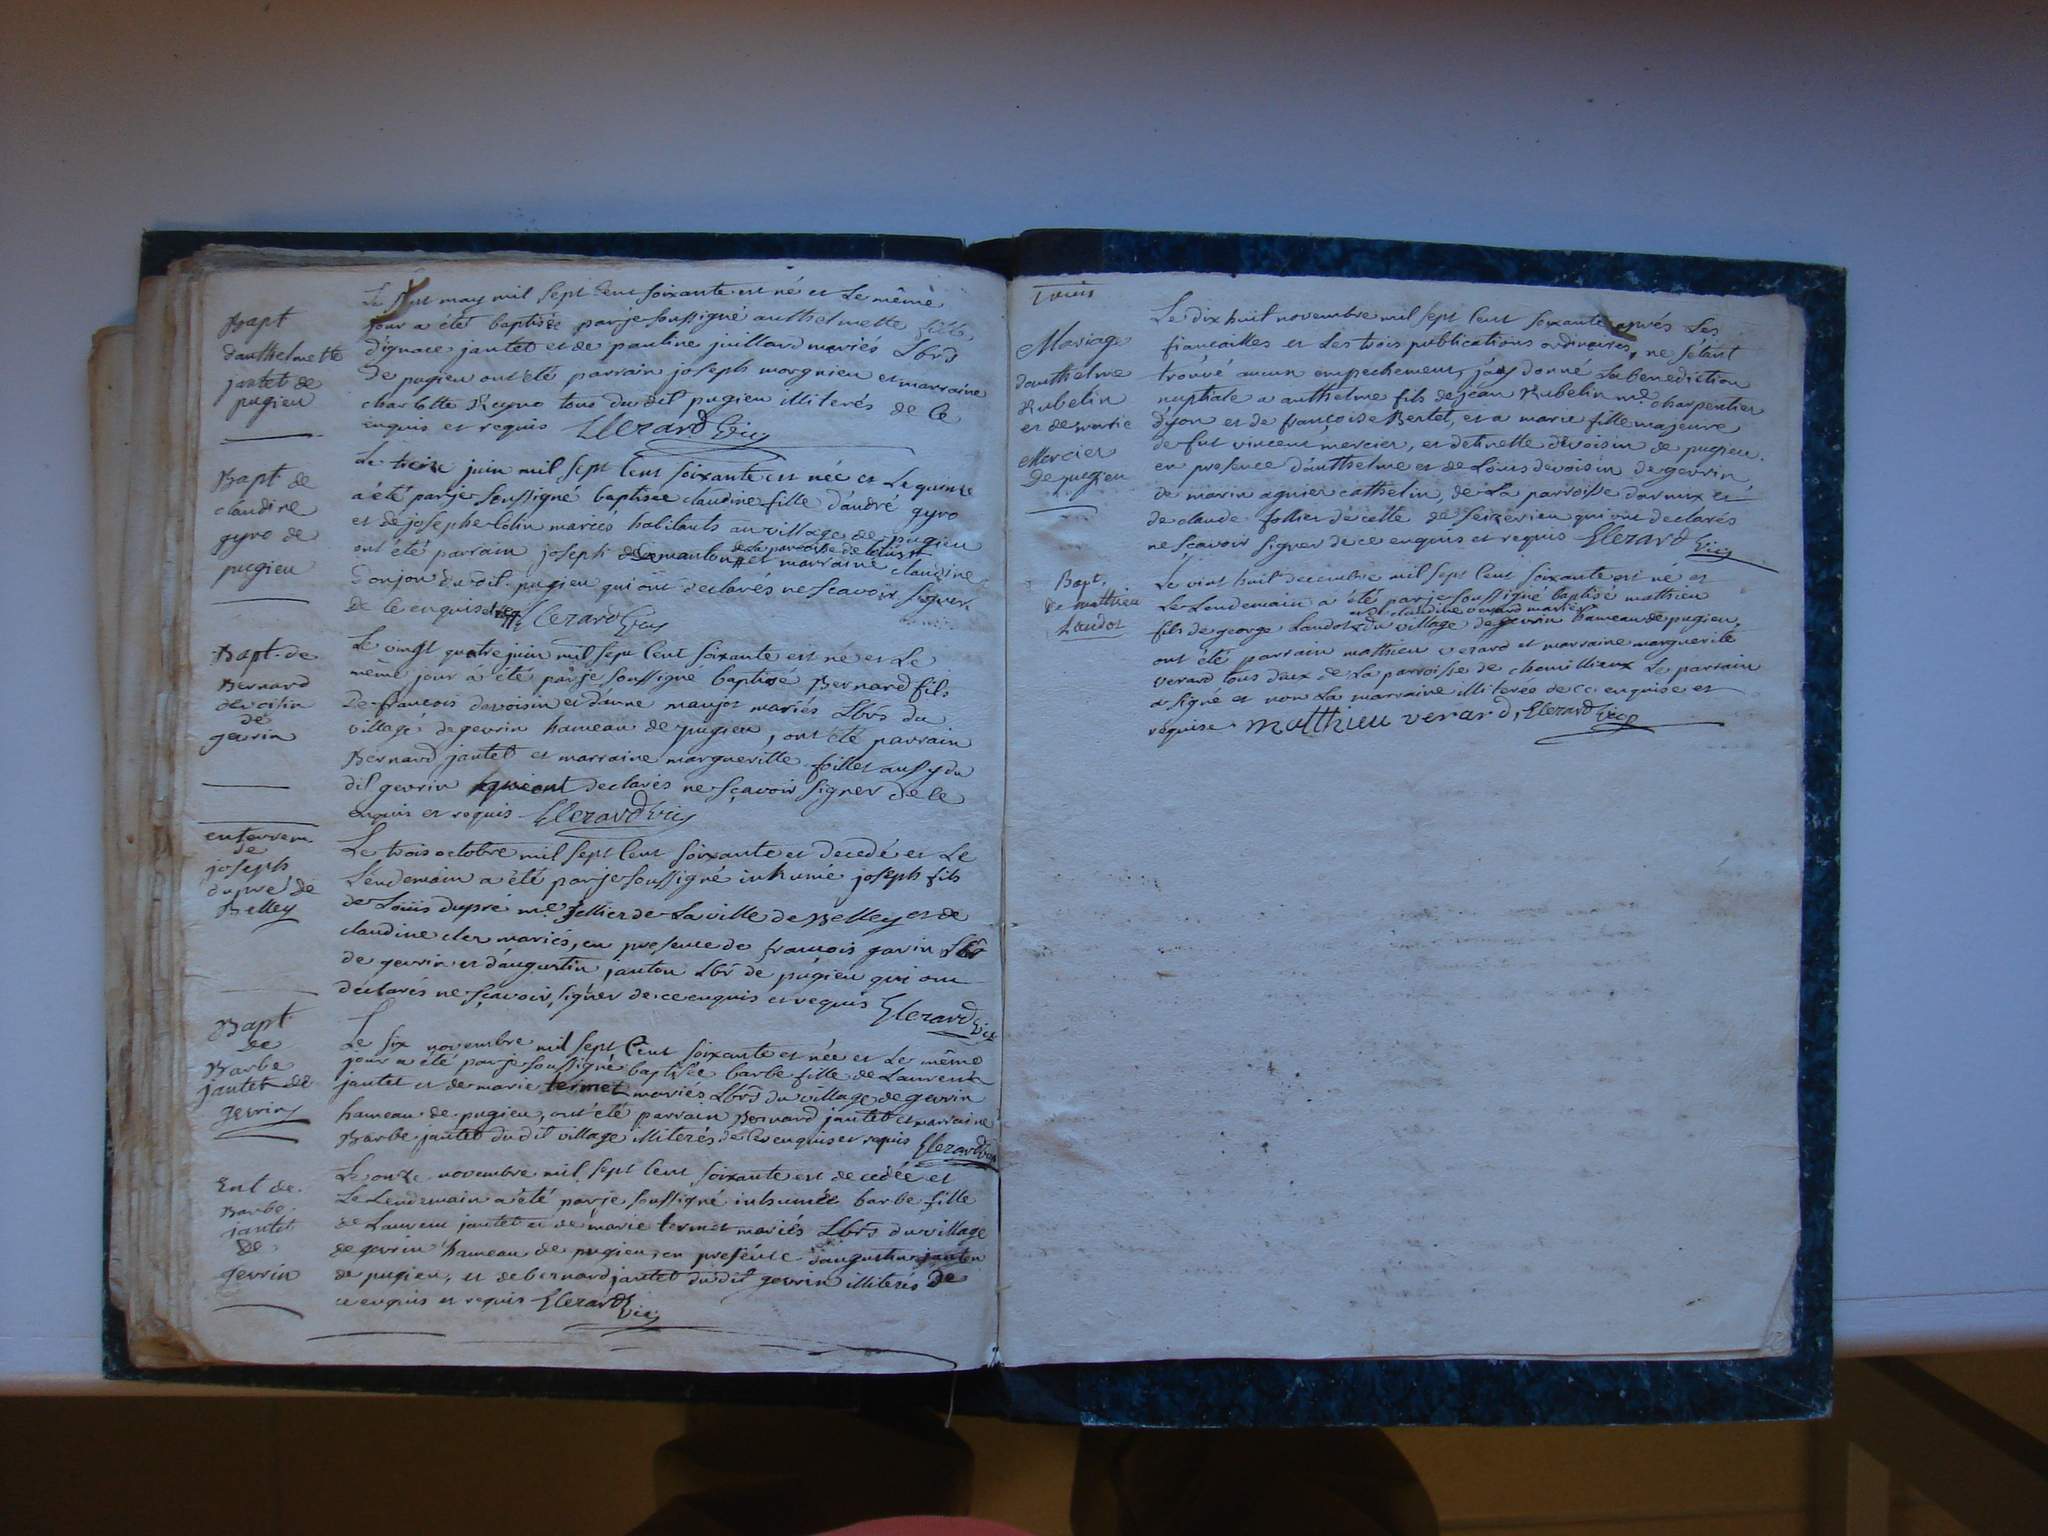 Bapt
d'authelmette
jantet de
pugieu
Le sept may mil sept Cent soixante est né et Le même
jour a été baptisée par je soussigné anthelmette fille
d'ignace jantet et de pauline juillard mariés Lbrs
de pugieu ont été parrain joseph morgnieu et marraine
charlotte Reyno tous du dit pugieu illiterés de Ce
enquis et requis Clerard Vic
Bapt de
claudine
gyro de
pugieu
Le treize juin mil sept Cent soixante est née et Le quinze
a été par je soussigné baptisée claudine fille d'andré gyro
et de josephe Colin mariés habitants au village de pugieu
ont été parrain joseph demanton et marraine claudine
de la parroisse de
donjon du dit pugieu qui ont declarés ne scavoir signer
de Ce enquis et req Clerard Vic
Bapt de
Bernard
devoisin
de
gevrin
Le vingt quatre juin mil sept Cent soixante est né et Le
même jour a été par je soussigné baptisé Bernard fils
De francois devoisin et d'anne manjot mariés Lbrs du
village de gevrin hameau de pugieu, ont été parrain
Bernard jantet et marraine margueritte foillet aussy du
dit gevrin qui ont declarés ne sçavoir signer de Ce
enquis et requis Clerard Vic
enterrem
de
joseph
dupré de
Belley
Le trois octobre mil sept Cent soixante est decedé et Le
Lendemain a été par je soussigné inhumé joseph fils
de Loüis dupré me sellier de La ville de Belley et de
claudine cler mariés, en presence de francois gavin Lbr
de gevrin et d'augustin janton Lbr de pugieu qui ont
declarés ne sçavoir signer de ce enquis et requis Clerard Vic
Bapt
de
Barbe
jantet de
gevrin
Le six novembre mil sept Cent soixante est née et Le même
jour a été par je soussigné baptisée barbe fille de Laurent
jantet et de marie termet mariés Lbrs du village de gevrin
hameau de pugieu, ont été parrain Bernard jantet et marraine
Barbe jantet du dit village illiterés de Ce enquis et requis Clerard Vic
Ent de
Barbe
jantet
De
gevrin
Le onze novembre mil sept Cent soixante est decedée et
Le Lendemain a été par je soussigné inhumée barbe fille
de Laurent jantet et de marie termet mariés Lbrs du village
de gevrin hameau de pugieu, en presence d'augustin janton
de pugieu, et de bernard jantet du dit gevrin illiterés de
ce enquis et requis Clerard Vic
Mariage
d'authelme
Rubelin
et de marie
Mercier
De pugieu
Le dix huit novembre mil sept Cent soixante après Les
fiancailles et Les trois publications ordinaires, ne s'étant
trouvé aucun empechement, j'ay donné La benediction
nuptiale a anthelme fils de jean Rubelin me charpentier
d'yon et de françoise Bertet, et a marie fille majeure
de fut vincent mercier, et de tinette devoisin de pugieu.
en presence d'anthelme et de Loüis devoisin de gevrin,
de marin agnier cathelin, de La parroisse d'armix et
de claude follier de celle de seizerieu qui ont declarés
ne sçavoir signer de ce enquis et requis Clerard Vic
Bapt,
de matthieu
Landot
Le vint huit decembre mil sept Cent soixante est né et
Le Lendemain a été par je soussigné baptisé mathieu
et de claudine verard mariés
fils de george Landot du village de gevrin hameau de pugieu,
ont été parrain mathieu verard et marraine marguerite
verard tous deux de La parroisse de chemilliaux Le parrain
a signé et non La marraine illiterée de ce enquise et
requise matthieu verard, Clerard Vic